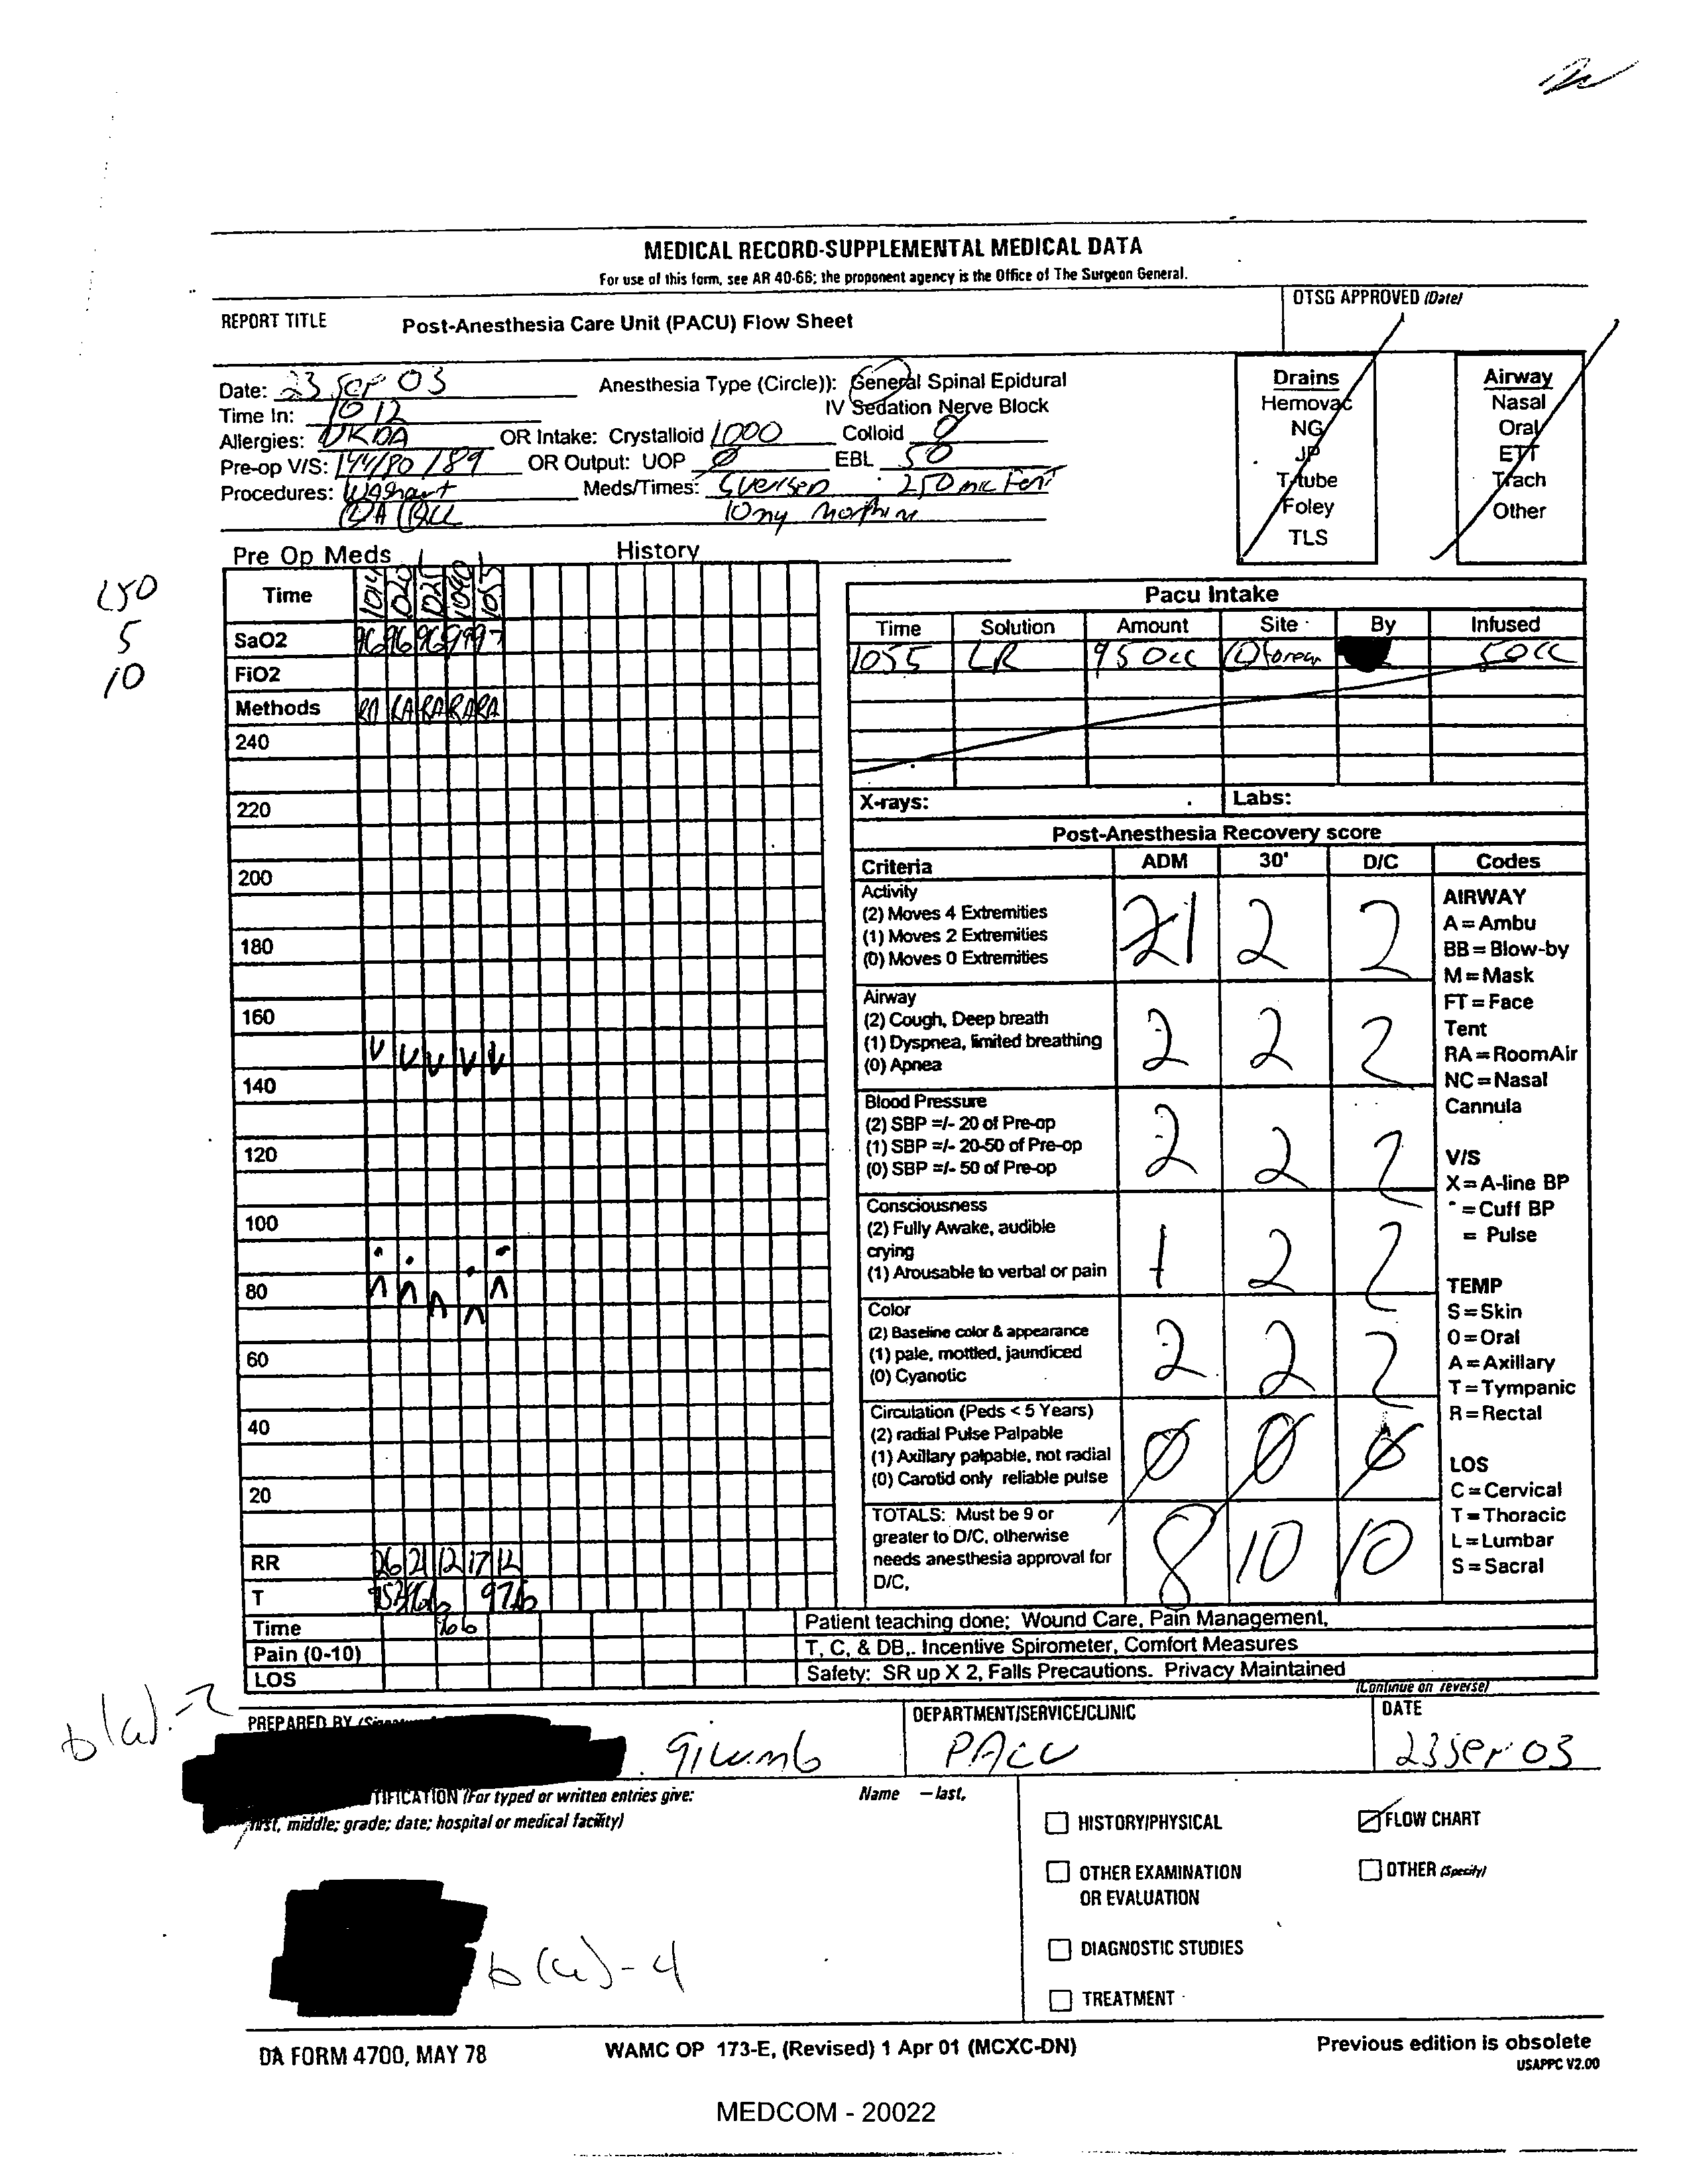 MEDICAL RECORD-SUPPLEMENTAL MEDICAL DATA
For use of this form, see AR 40-66; the proponent agency is the Office of The Surgeon General.
REPORT TITLE Post-Anesthesia Care Unit (PACU) Flow Sheet
OTSG APPROVED (Date)
Date: 23 Sep 03 Anesthesia Type (Circle)): General Spinal Epidural
Time In: 1012 IV Sedation Nerve Block
Allergies: NKDA OR Intake: Crystalloid 1000 Colloid 0
Pre-op V/S: 144/80 / 89 OR Output: UOP 0 EBL 50
Procedures: Washout Meds/Times: 5 Versed 250 mic Fent
10mg Morphine
Drains
Hemovac
NG
JP
T-tube
Foley
TLS
Airway
Nasal
Oral
ETT
Trach
Other
Pre Op Meds History
250
5
10
Time 1014 1020 1025 1040 1055
SaO2 96 96 96 99 97
FiO2
Methods RA RA RA RA RA
240
220
200
180
160
140
120
100
80
60
40
20
RR 26 21 12 17 12
T 97.6
Time
Pain (0-10)
LOS
Pacu Intake
Time Solution Amount Site By Infused
1055 LR 950cc (L) forearm 50cc
X-rays: Labs:
Post-Anesthesia Recovery score
Criteria ADM 30' D/C Codes
Activity
(2) Moves 4 Extremities
(1) Moves 2 Extremities
(0) Moves 0 Extremities
2 1 2 2
Airway
(2) Cough, Deep breath
(1) Dyspnea, limited breathing
(0) Apnea
2 2 2
Blood Pressure
(2) SBP =/- 20 of Pre-op
(1) SBP =/- 20-50 of Pre-op
(0) SBP =/- 50 of Pre-op
2 2 2
Consciousness
(2) Fully Awake, audible
crying
(1) Arousable to verbal or pain
1 2 2
Color
(2) Baseline color & appearance
(1) pale, mottled, jaundiced
(0) Cyanotic
2 2 2
Circulation (Peds < 5 Years)
(2) radial Pulse Palpable
(1) Axillary palpable, not radial
(0) Carotid only reliable pulse
0 0 0
TOTALS: Must be 9 or
greater to D/C, otherwise
needs anesthesia approval for
D/C,
8 10 10
AIRWAY
A = Ambu
BB = Blow-by
M = Mask
FT = Face
Tent
RA = RoomAir
NC = Nasal
Cannula
V/S
X = A-line BP
- = Cuff BP
= Pulse
TEMP
S = Skin
O = Oral
A = Axillary
T = Tympanic
R = Rectal
LOS
C = Cervical
T = Thoracic
L = Lumbar
S = Sacral
Patient teaching done; Wound Care, Pain Management,
T, C, & DB,. Incentive Spirometer, Comfort Measures
Safety: SR up X 2, Falls Precautions. Privacy Maintained
(Continue on reverse)
b(6)-2
PREPARED BY 91WM6
DEPARTMENT/SERVICE/CLINIC
PACU
DATE
23 Sep 03
TIFICATION (For typed or written entries give: Name — last,
first, middle; grade; date; hospital or medical facility)
b(6)-4
HISTORY/PHYSICAL
FLOW CHART
OTHER EXAMINATION
OR EVALUATION
OTHER (Specify)
DIAGNOSTIC STUDIES
TREATMENT
DA FORM 4700, MAY 78 WAMC OP 173-E, (Revised) 1 Apr 01 (MCXC-DN) Previous edition is obsolete
USAPPC V2.00
MEDCOM - 20022